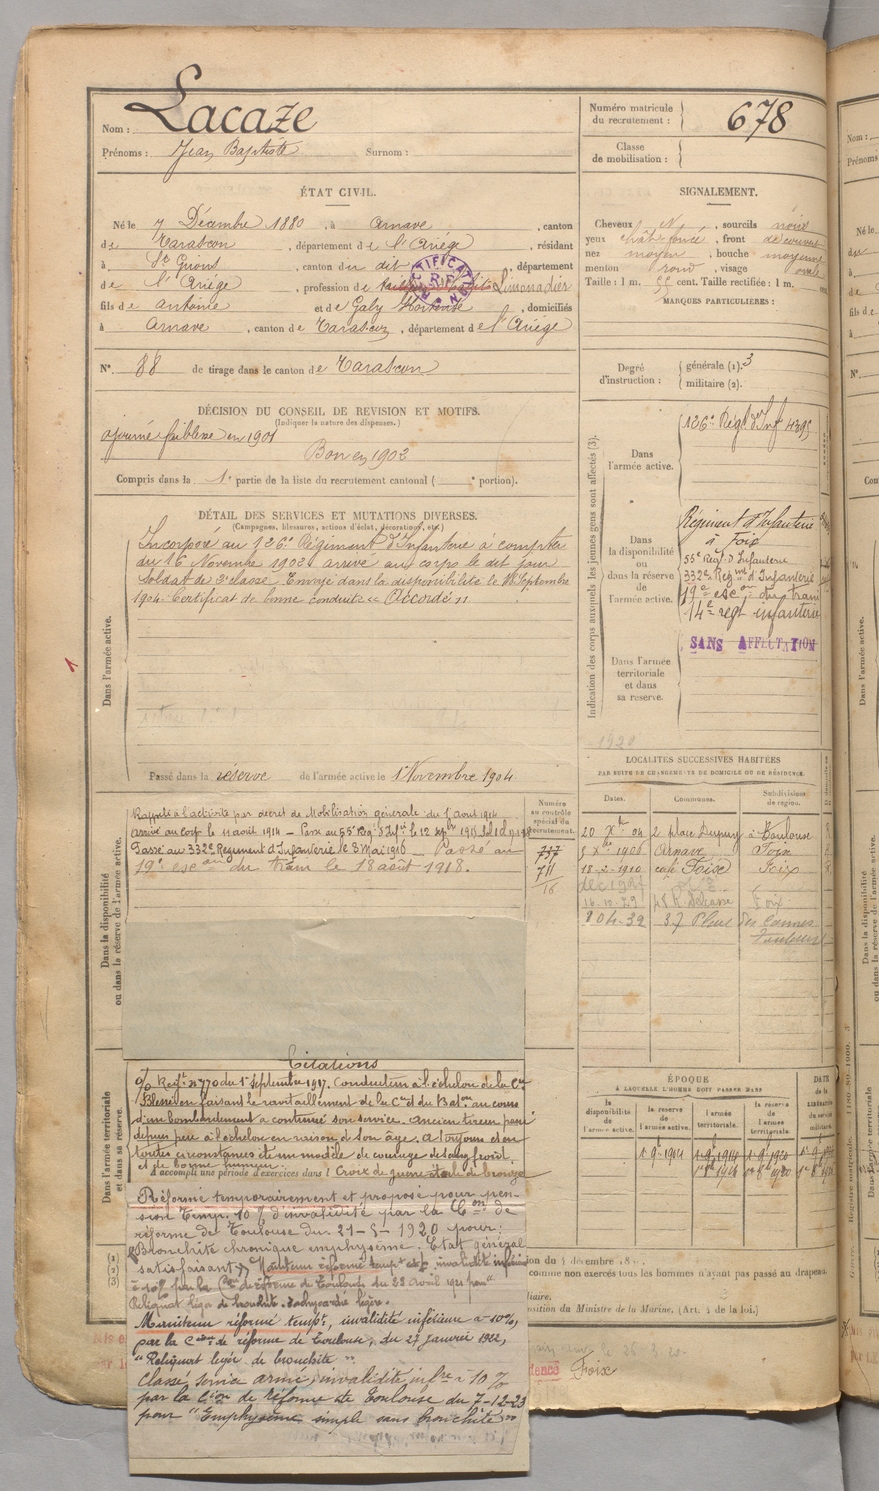 Nom : Lacaze
Prénoms : Jean Baptiste Surnom :
Numéro matricule du recrutement : 678
Classe de mobilisation :
ÉTAT CIVIL.
Né le 7 Décembre 1880, à Arnave, canton
de Tarascon, département de l'Ariège, résidant
à St Girons, canton du dit, département
de l'Ariège, profession de Limonadier
fils de Antoine et de Gaby Hortense, domiciliés
à Arnave, canton de Tarascon, département de l'Ariège
RECTIFICATION
R.F.
N° 88 de tirage dans le canton de Tarascon
DÉCISION DU CONSEIL DE REVISION ET MOTIFS.
(Indiquer la nature des dispenses.)
ajourné faiblesse en 1901
Bon en 1902
Compris dans la 1e partie de la liste du recrutement cantonal ( e portion).
DÉTAIL DES SERVICES ET MUTATIONS DIVERSES.
(Campagnes, blessures, actions d'éclat, décorations, etc.)
Dans l'armée active.
Incorporé au 126e Régiment d'Infanterie à compter
du 16 Novembre 1902 arrivé au corps le dit jour
Soldat de 2e classe. Envoyé dans la disponibilité le Septembre
1904. Certificat de bonne conduite « Accordé »
Passé dans la réserve de l'armée active le 1 Novembre 1904
Dans la disponibilité
ou dans la réserve de l'armée active.
Rappelé à l'activité par décret de Mobilisation générale du 1 août 1914
arrivé au corps le 11 août 1914 – Passé au 55e Rég. d'Infie le 12
Passé au 332e Régiment d'Infanterie le 3 Mai 1916 – Passé au
19e escon du train le 18 août 1918.
Numéro au contrôle spécial du recrutement.
711
16
Dans l'armée territoriale
et dans sa réserve.
Citations
O/ Regt n° 770 du 1 Septembre 1917. Conducteur à l'échelon de la Cie
Blessé en faisant le ravitaillement de la Cie et du Baton au cours
d'un bombardement a continué son service. Ancien tireur passé
depuis peu à l'échelon en raison de son âge. A toujours et en
toutes circonstances été un modèle de courage de sang froid
et de bonne humeur.
d'accompli une période d'exercices dans l Croix de guerre étoile de bronze
Réformé temporairement et proposé pour pen-
sion Temp. 10 % d'invalidité par la Con de
réforme de Toulouse du 21-5-1920 pour:
Bronchite chronique emphysème. Etat général
satisfaisant. Maintenu réformé tempt, invalidité inférieure
à 10% par la Con de réforme de Toulouse du 23 Avril 1921 pour
Reliquat léger de bronchite. Tachycardie légère.
Maintenu réformé tempt, invalidité inférieure à 10%,
par la Con de réforme de Toulouse, du 27 janvier 1922,
"Reliquat léger de bronchite".
Classé service armé, invalidité infre à 10 %
par la Cion de réforme de Toulouse du 7-12-23
pour "Emphysème simple sans bronchite"
SIGNALEMENT.
Cheveux N, sourcils noirs
yeux chât. foncé, front découvert
nez moyen, bouche moyenne
menton rond, visage ovale
Taille : 1 m. 55 cent. Taille rectifiée : 1 m. cent.
MARQUES PARTICULIÈRES :
Degré d'instruction : générale (1). 3
militaire (2).
Indication des corps auxquels les jeunes gens sont affectés (3).
Dans l'armée active.
126e Régt d'Inf 4395
Dans la disponibilité ou dans la réserve de l'armée active.
Régiment d'Infanterie
à Foix
55e Régt d'Infanterie
332e Regmt d'Infanterie
19e escon du train
14e regt infanterie
SANS AFFECTATION
Dans l'armée territoriale et dans sa réserve.
1920
LOCALITÉS SUCCESSIVES HABITÉES
PAR SUITE DE CHANGEMENTS DE DOMICILE OU DE RÉSIDENCE.
Dates. Communes. Subdivisions de région.
20 Xbre 04 2 place Dupuy à Toulouse
5 Xbre 1906 Arnave Foix
18-2-1910 café Foix Foix
16-10-29 Delcassé Foix
8 04-39 37 Place des Carmes
Toulouse
ÉPOQUE
À LAQUELLE L'HOMME DOIT PASSER DANS
la disponibilité de l'armée active. la réserve de l'armée active. l'armée territoriale. la réserve de l'armée territoriale. DATE de la libération du service militaire.
1 9bre 1904 1 9bre 1914 1 9bre 1920
on du 1 décembre 18
comme non exercés tous les hommes n'ayant pas passé au drapeau.
iaire.
osition du Ministre de la Marine, (Art. 4 de la loi.)
Foix